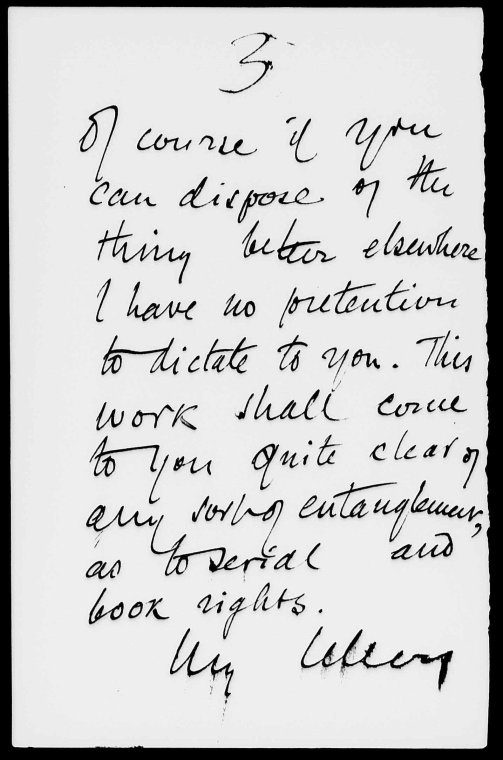 3
Of course if you
can dispose of the
thing better elsewhere
I have no pretention
to dictate to you. This
work shall come
to you quite clear of
any sort of entanglement,
as to serial and
book rights.
My